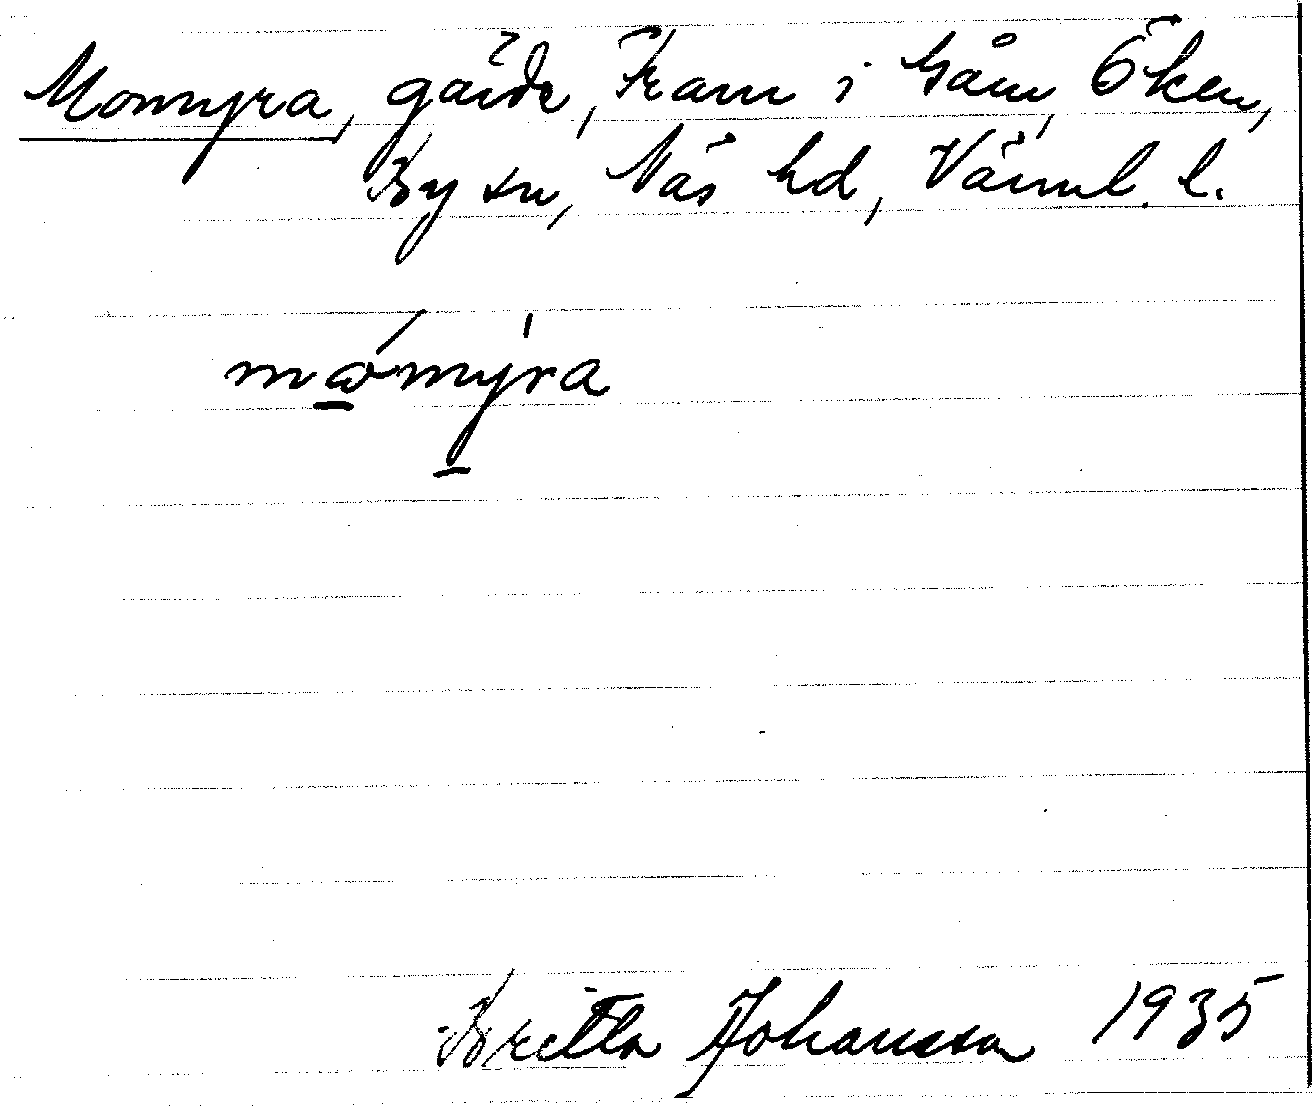 Momyra, gärde, Fram i Gåm, Öken,
By sn, Näs hd, Värml. l.
mώmýra
Britta Johansson 1935